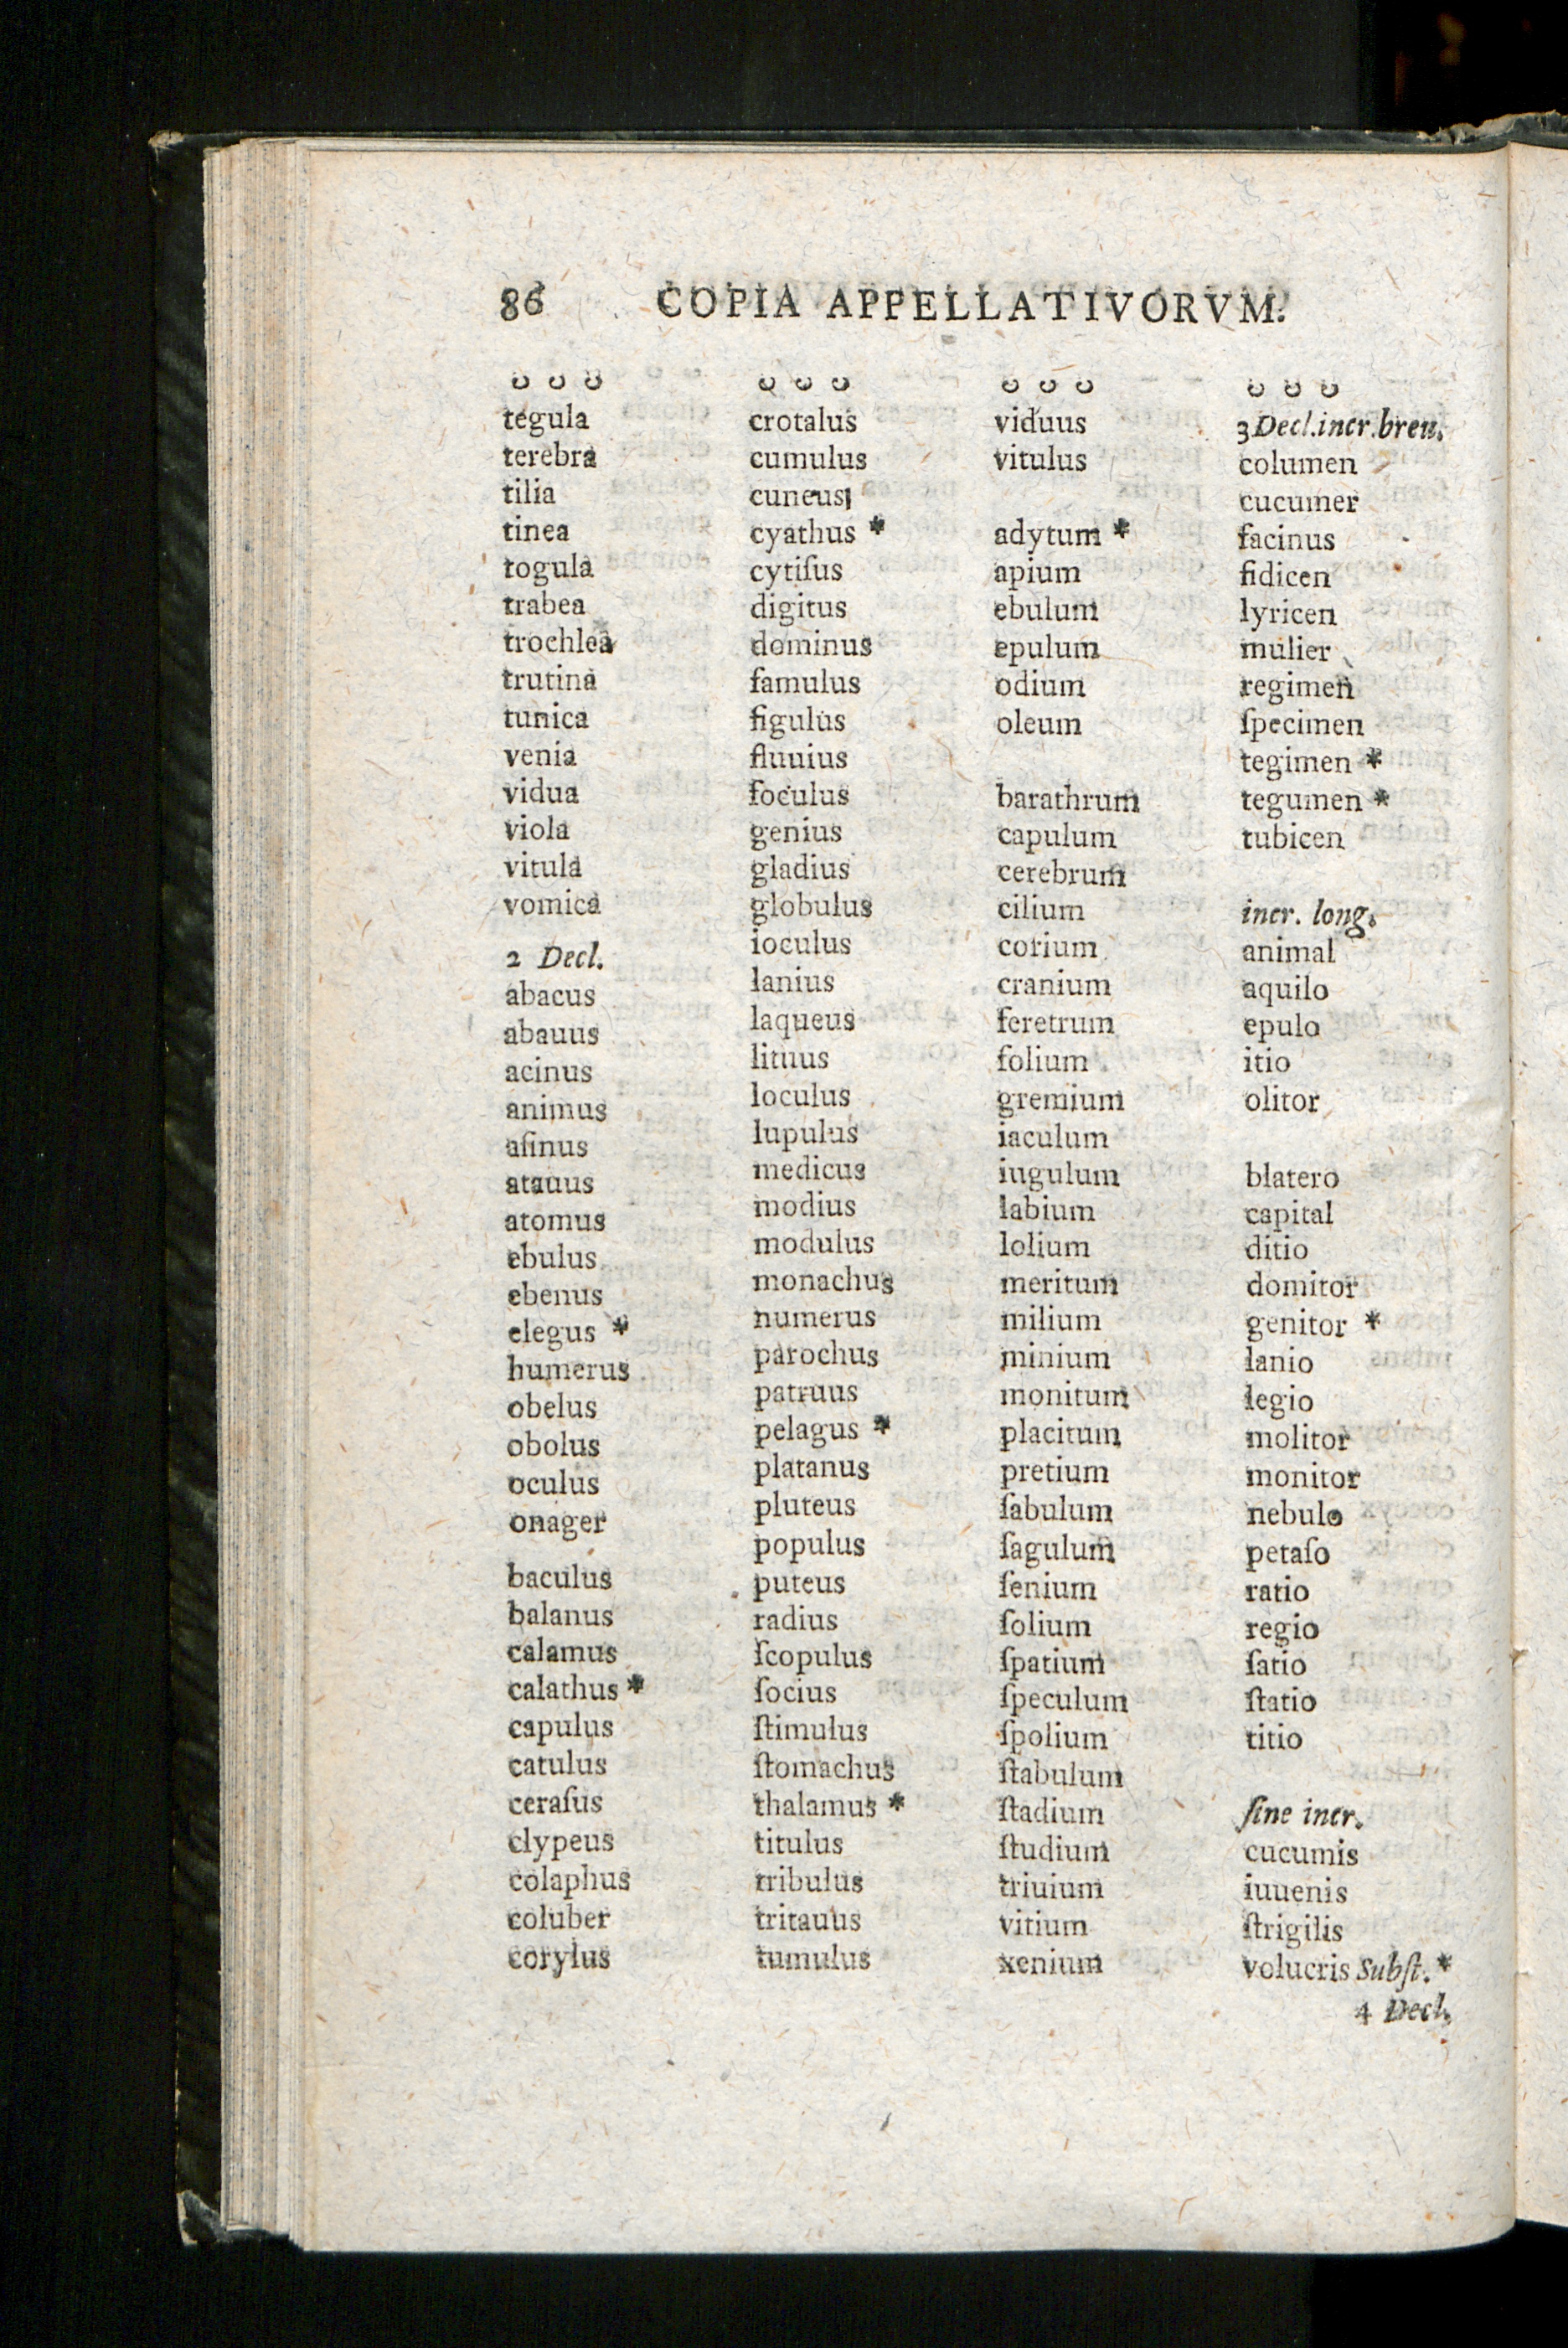 86 COPIA APPELLATIVORVM.
◡ ◡ ◡
tegula
terebra
tilia
tinea
togula
trabea
trochlea
trutina
tunica
venia
vidua
viola
vitula
vomica
2 Decl.
abacus
abauus
acinus
animus
aſinus
atauus
atomus
ebulus
ebenus
elegus *
humerus
obelus
obolus
oculus
onager
baculus
balanus
calamus
calathus *
capulus
catulus
ceraſus
clypeus
colaphus
coluber
corylus
◡ ◡ ◡
crotalus
cumulus
cuneus
cyathus *
cytiſus
digitus
dominus
famulus
figulus
fluuius
foculus
genius
gladius
globulus
ioculus
lanius
laqueus
lituus
loculus
lupulus
medicus
modius
modulus
monachus
numerus
parochus
patruus
pelagus *
platanus
pluteus
populus
puteus
radius
ſcopulus
ſocius
ſtimulus
ſtomachus
thalamus *
titulus
tribulus
tritauus
tumulus
◡ ◡ ◡
viduus
vitulus
adytum *
apium
ebulum
epulum
odium
oleum
barathrum
capulum
cerebrum
cilium
corium
cranium
feretrum
folium
gremium
iaculum
iugulum
labium
lolium
meritum
milium
minium
monitum
placitum
pretium
ſabulum
ſagulum
ſenium
ſolium
ſpatium
ſpeculum
ſpolium
ſtabulum
ſtadium
ſtudium
triuium
vitium
xenium
◡ ◡ ◡
3 Decl. incr. breu.
columen
cucumer
facinus
fidicen
lyricen
mulier
regimen
ſpecimen
tegimen *
tegumen *
tubicen
incr. long.
animal
aquilo
epulo
itio
olitor
blatero
capital
ditio
domitor
genitor *
lanio
legio
molitor
monitor
nebulo
petaſo
ratio
regio
ſatio
ſtatio
titio
ſine incr.
cucumis
iuuenis
ſtrigilis
volucris Subſt. *
4 Decl.